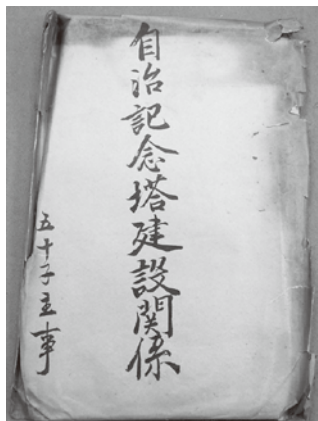 自治記念塔建設関係
五十子主事